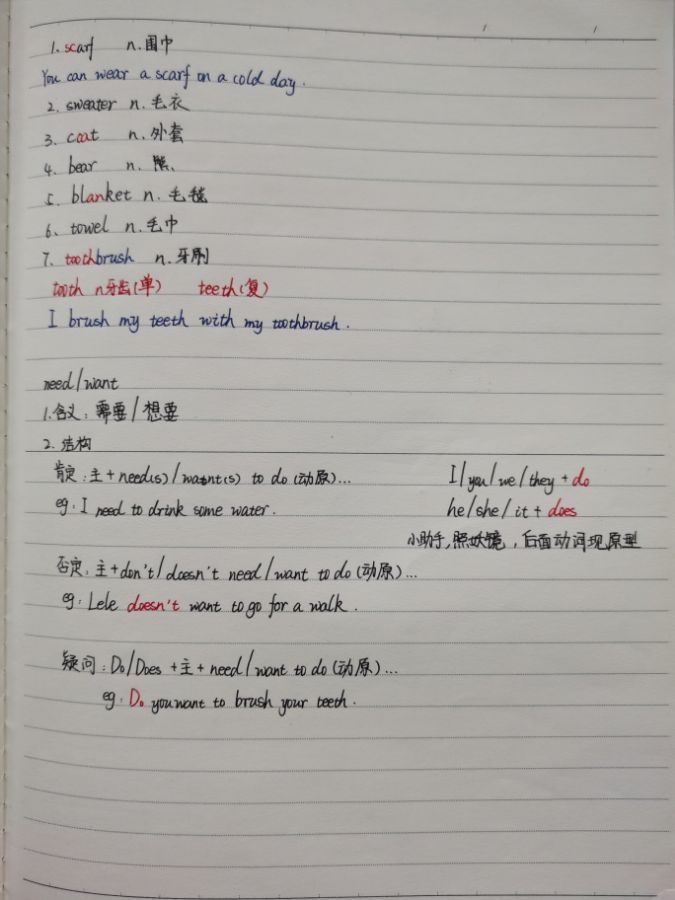 1. scarf n. 围巾
You can wear a scarf on a cold day.
2. sweater n. 毛衣
3. coat n. 外套
4. bear n. 熊
5. blanket n. 毛毯
6. towel n. 毛巾
7. toothbrush n. 牙刷
tooth n牙齿(单) teeth(复)
I brush my teeth with my toothbrush.
need/want
1.含义: 需要/想要
2. 结构
肯定:主+need(s)/want(s) to do(动原)... I/you/we/they+do
eg: I need to drink some water. he/she/it+does
小助手,照妖镜,后面动词现原型
否定:主+don't/doesn't need/want to do(动原)...
eg: Lele doesn't want to go for a walk.
疑问:Do/Does+主+need/want to do(动原)...
eg: Do you want to brush your teeth.